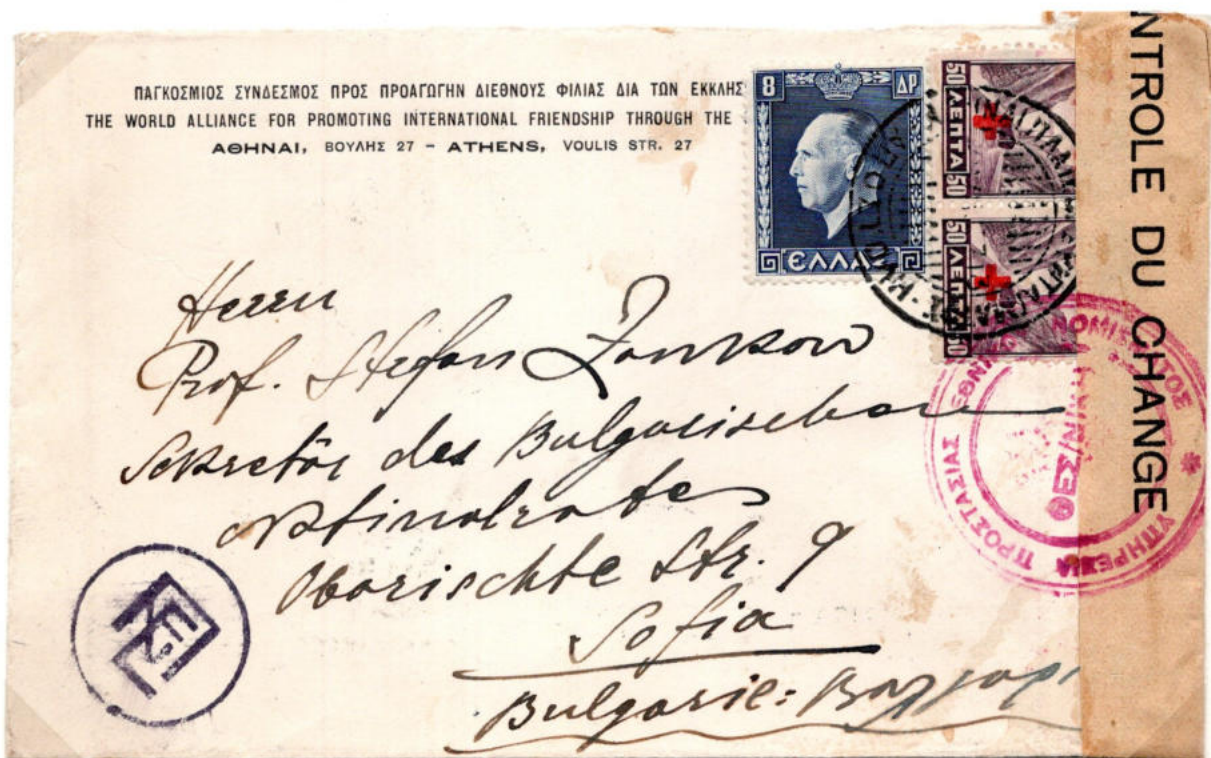 ΠΑΓΚΟΣΜΙΟΣ ΣΥΝΔΕΣΜΟΣ ΠΡΟΣ ΠΡΟΑΓΩΓΗΝ ΔΙΕΘΝΟΥΣ ΦΙΛΙΑΣ ΔΙΑ ΤΩΝ ΕΚΚΛΗΣ
THE WORLD ALLIANCE FOR PROMOTING INTERNATIONAL FRIENDSHIP THROUGH THE
ΑΘΗΝΑΙ, ΒΟΥΛΗΣ 27 – ATHENS, VOULIS STR. 27
8 ΔΡ
ΕΛΛΑΣ
50 ΛΕΠΤΑ 50
50 ΛΕΠΤΑ 50
NTROLE DU CHANGE
ΥΠΗΡΕΣΙΑ ΠΡΟΣΤΑΣΙΑΣ ΕΘΝΙΚΟΥ ΝΟΜΙΣΜΑΤΟΣ
Herrn
Prof. Stefan Zankow
Sekretär des Bulgarischen
Oborischte Str. 9
Sofia
Bulgarie: Βουλγαρι